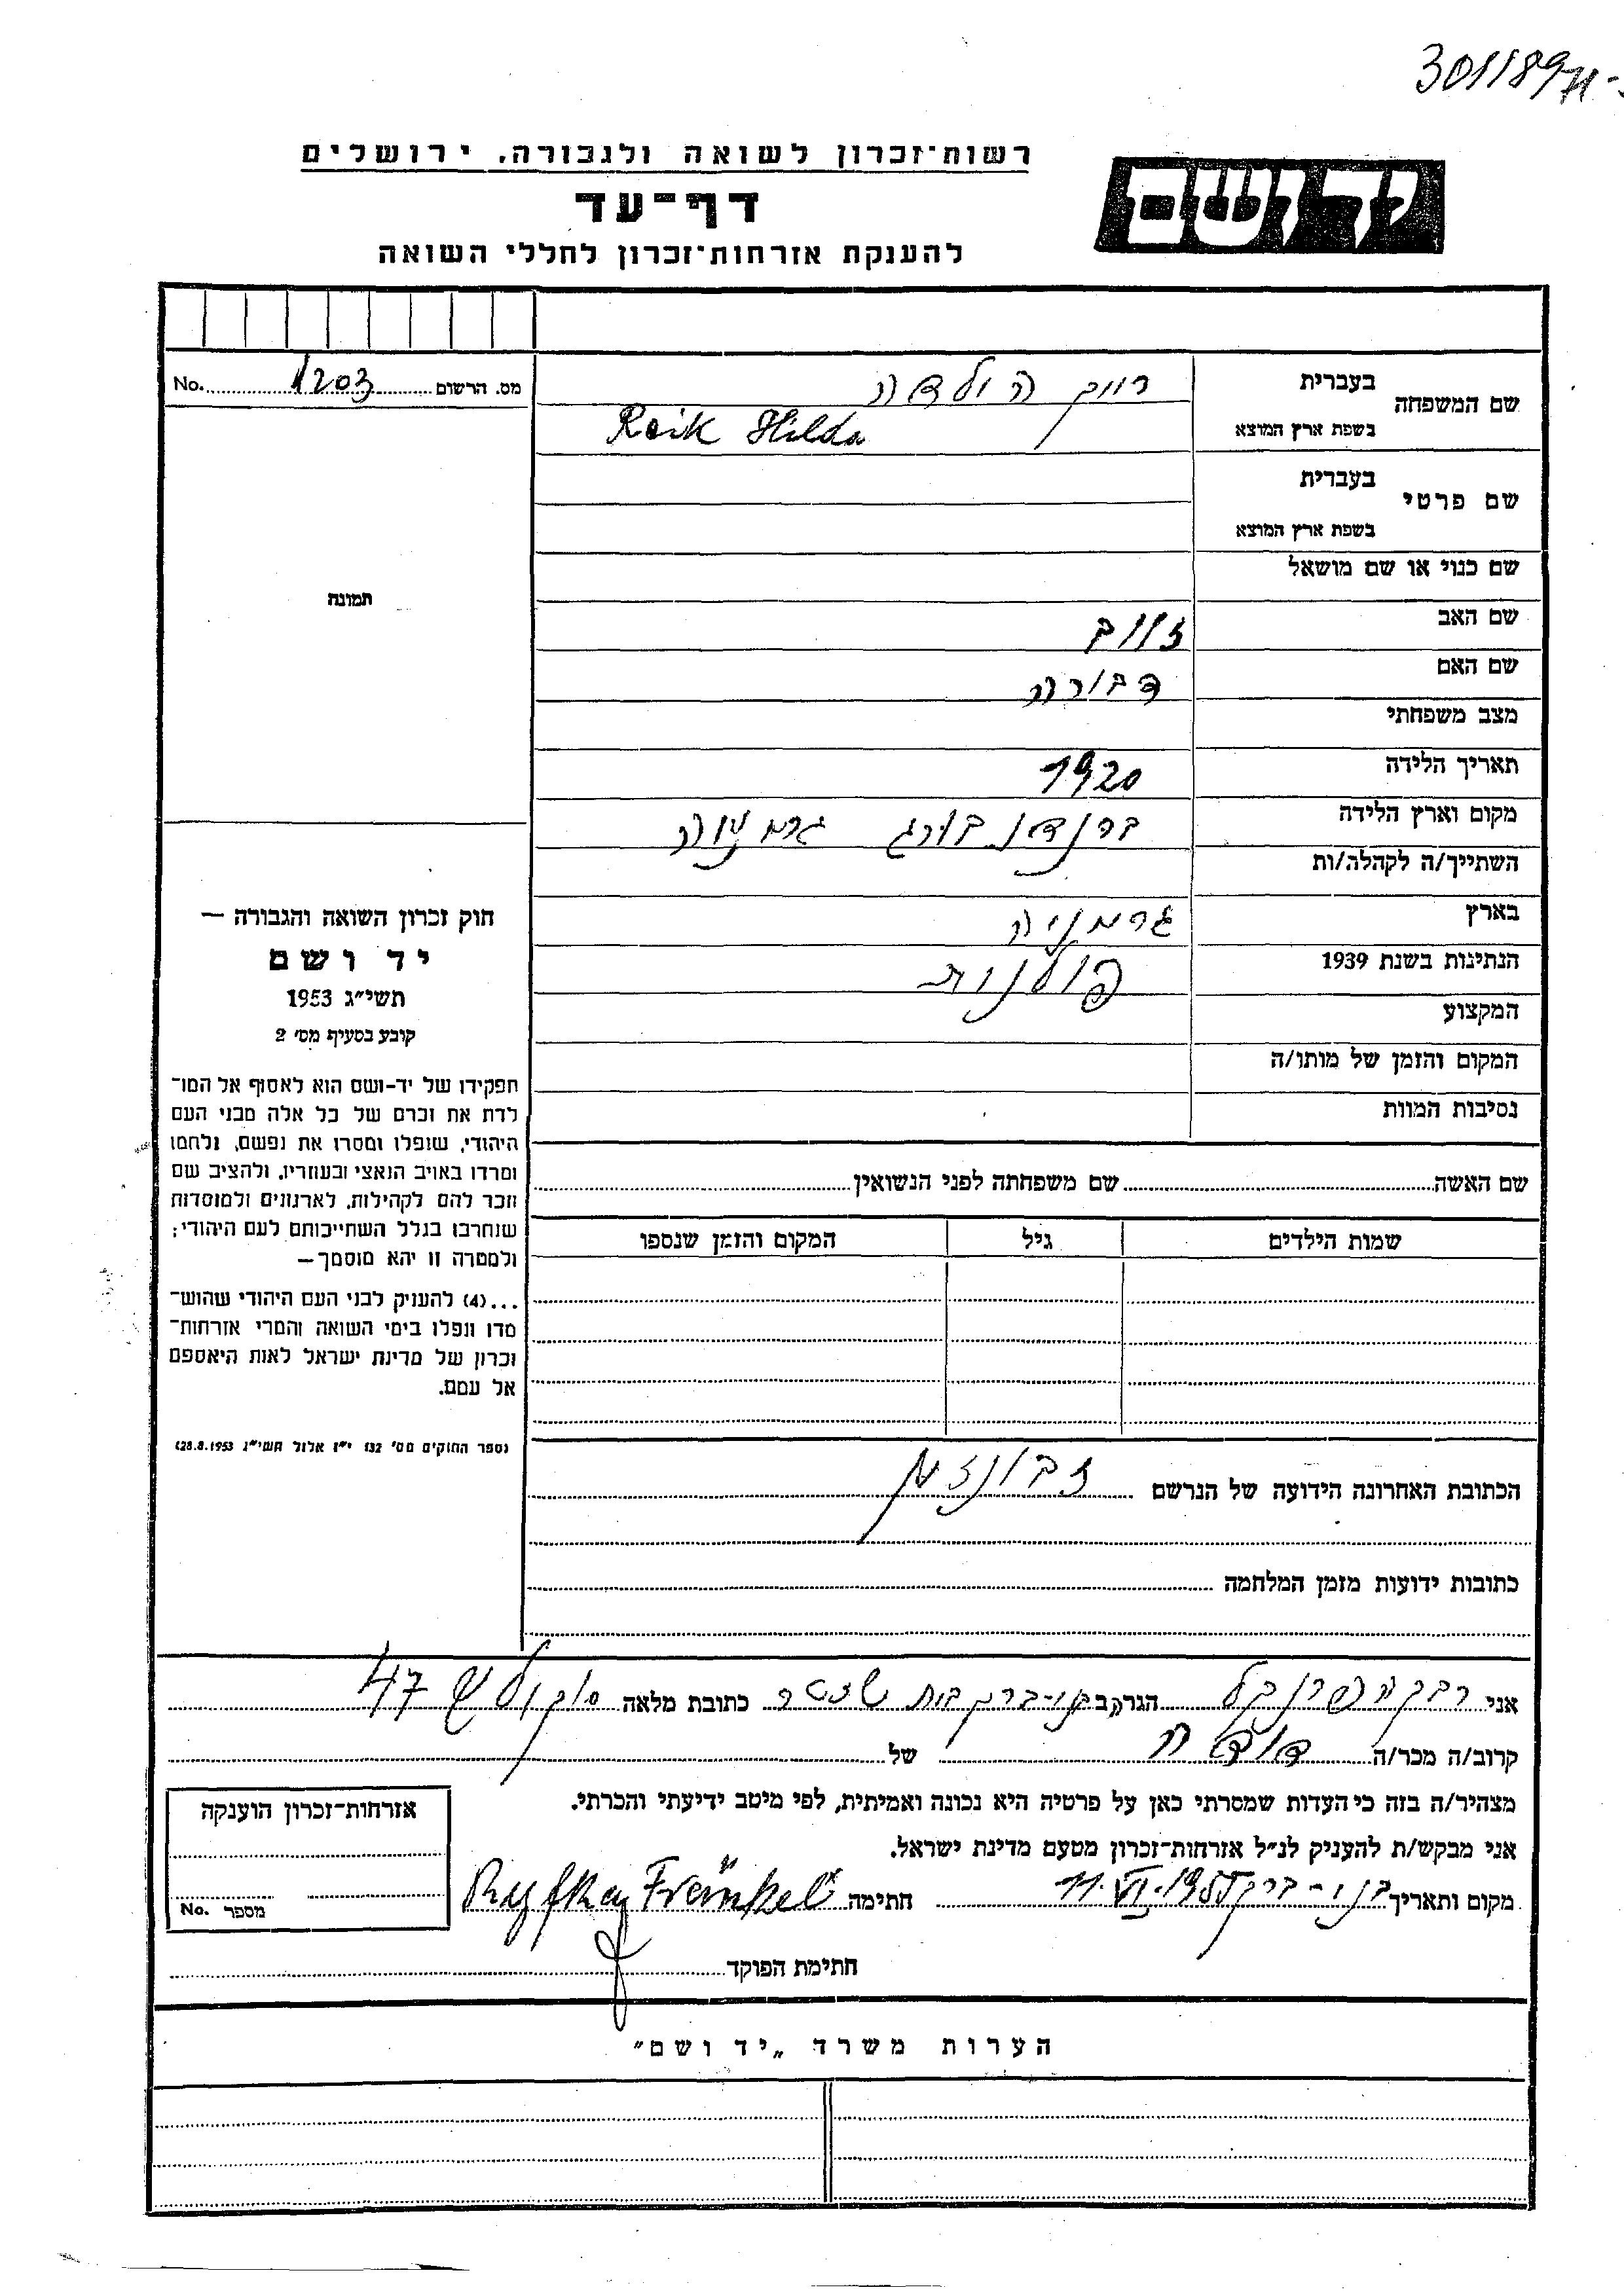 301189
רשות־זכרון לשואה ולגבורה, ירושלים
יד ושם
דף־עד
להענקת אזרחות־זכרון לחללי השואה
מס. הרשום 1203 No.
שם המשפחה
בעברית רייך הילדה
בשפת ארץ המוצא Reik Hilda
שם פרטי
בעברית
בשפת ארץ המוצא
שם כנוי או שם מושאל
שם האב
שם האם דבורה
מצב משפחתי
תאריך הלידה 1920
מקום וארץ הלידה ברנדנבורג גרמניה
השתייך/ה לקהלה/ות
בארץ גרמניה
הנתינות בשנת 1939 פולנית
המקצוע
המקום והזמן של מותו/ה
נסיבות המוות
תמונה
חוק זכרון השואה והגבורה —
יד ושם
תשי״ג 1953
קובע בסעיף מס׳ 2
תפקידו של יד-ושם הוא לאסוף אל המו־
לדת את זכרם של כל אלה מבני העם
היהודי, שנפלו ומסרו את נפשם, נלחמו
ומרדו באויב הנאצי ובעוזריו, ולהציב שם
וזכר להם לקהילות, לארגונים ולמוסדות
שנחרבו בגלל השתייכותם לעם היהודי;
ולמטרה זו יהא מוסמך—
...(4) להעניק לבני העם היהודי שהוש־
מדו ונפלו בימי השואה והמרי אזרחות־
זכרון של מדינת ישראל לאות היאספם
אל עמם.
(ספר החוקים מס׳ 132 י״ז אלול תשי״ג 28.8.1953)
שם האשה שם משפחתה לפני הנשואין
שמות הילדים גיל המקום והזמן שנספו
הכתובת האחרונה הידועה של הנרשם
כתובות ידועות מזמן המלחמה
אני רבקה פרנקל הגר בבני-ברק כתובת מלאה סוקולוב 47
קרוב/ה מכר/ה דודה של
מצהיר/ה בזה כי העדות שמסרתי כאן על פרטיה היא נכונה ואמיתית, לפי מיטב ידיעתי והכרתי.
אני מבקש/ת להעניק לנ״ל אזרחות־זכרון מטעם מדינת ישראל.
מקום ותאריך בני-ברק 11.VI.1955 חתימה Ryfka Fränkel
חתימת הפוקד
אזרחות־זכרון הוענקה
מספר No.
הערות משרד „יד ושם״